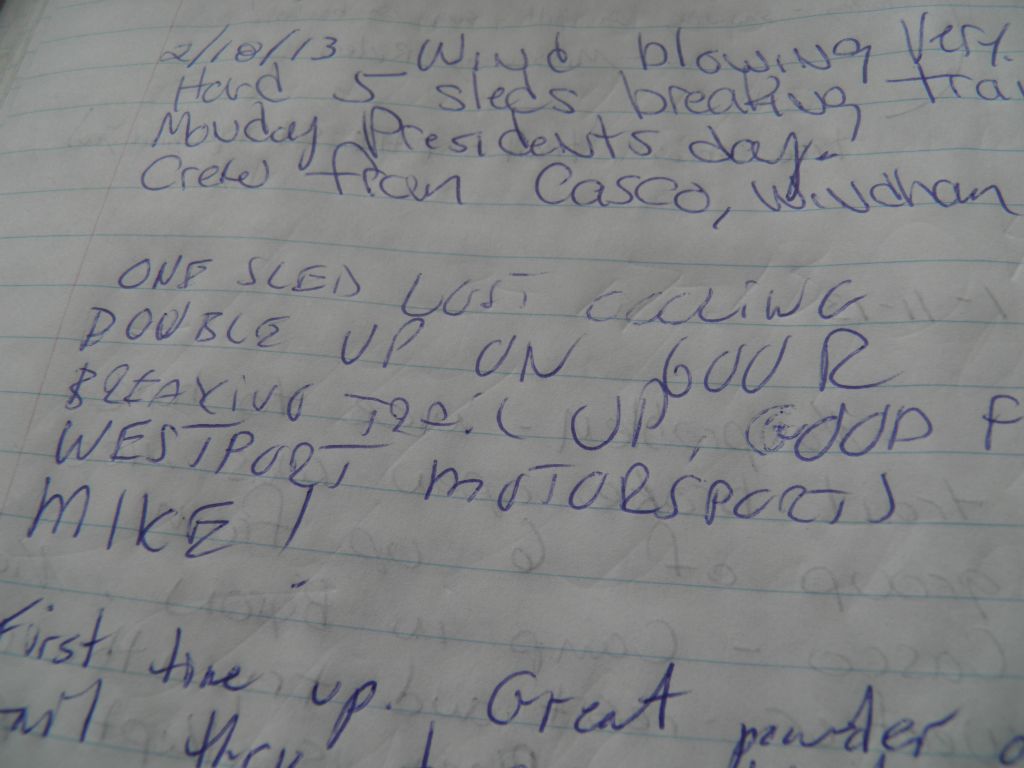 2/18/13 Wind blowing Very.
Hard 5 sleds breaking trai
Monday Presidents day.
Crew from Casco, Windham
ONE SLED LOST COOLING
DOUBLE UP ON 600 R
BREAKING TRAIL UP, GOOD F
WESTPORT MOTORSPORTS
MIKE!
First time up. Great powder